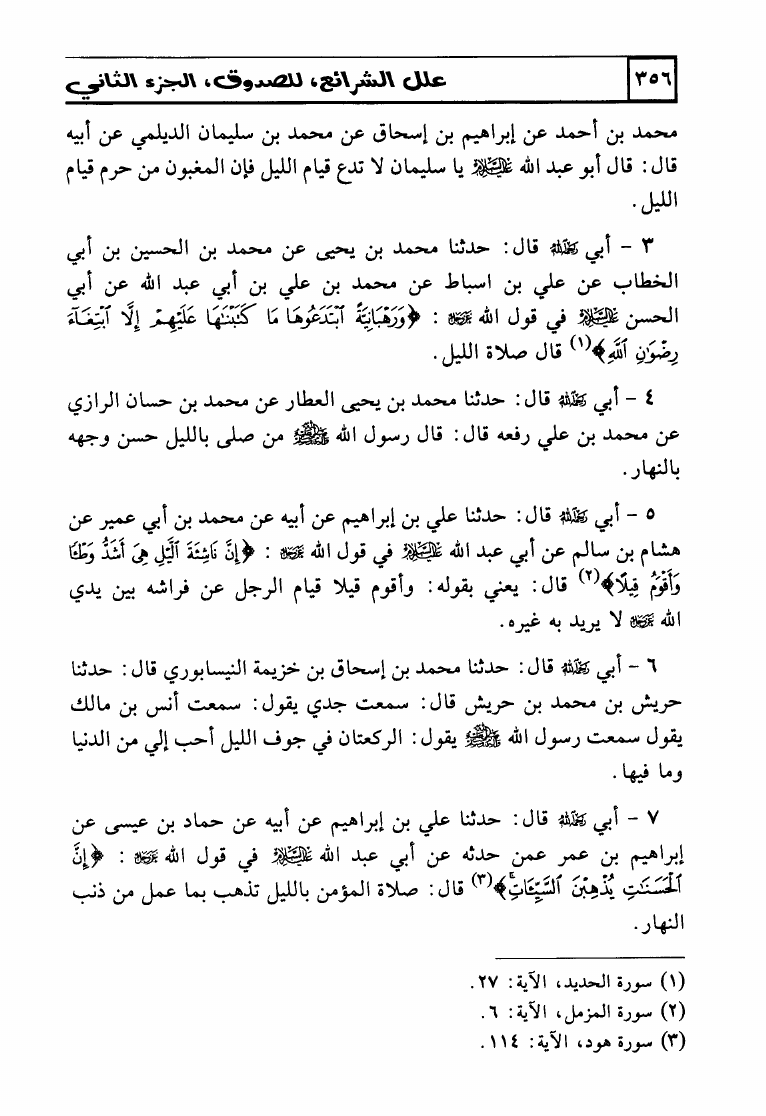 ٣٥٦
علل الشرائع، للصدوق، الجزء الثاني
محمد بن أحمد عن إبراهيم بن إسحاق عن محمد بن سليمان الديلمي عن أبيه
قال: قال أبو عبد الله عليه السلام يا سليمان لا تدع قيام الليل فإن المغبون من حرم قيام
الليل.
٣ - أبي رحمه الله قال: حدثنا محمد بن يحيى عن محمد بن الحسين بن أبي
الخطاب عن علي بن اسباط عن محمد بن علي بن أبي عبد الله عن أبي
الحسن عليه السلام في قول الله عز وجل: ﴿وَرَهْبَانِيَّةً ٱبْتَدَعُوهَا مَا كَتَبْنَٰهَا عَلَيْهِمْ إِلَّا ٱبْتِغَآءَ
رِضْوَٰنِ ٱللَّهِ﴾(١) قال صلاة الليل.
٤ - أبي رحمه الله قال: حدثنا محمد بن يحيى العطار عن محمد بن حسان الرازي
عن محمد بن علي رفعه قال: قال رسول الله ﷺ من صلى بالليل حسن وجهه
بالنهار.
٥ - أبي رحمه الله قال: حدثنا علي بن إبراهيم عن أبيه عن محمد بن أبي عمير عن
هشام بن سالم عن أبي عبد الله عليه السلام في قول الله عز وجل: ﴿إِنَّ نَاشِئَةَ ٱلَّيْلِ هِىَ أَشَدُّ وَطْـًٔا
وَأَقْوَمُ قِيلًا﴾(٢) قال: يعني بقوله: وأقوم قيلا قيام الرجل عن فراشه بين يدي
الله عز وجل لا يريد به غيره.
٦ - أبي رحمه الله قال: حدثنا محمد بن إسحاق بن خزيمة النيسابوري قال: حدثنا
حريش بن محمد بن حريش قال: سمعت جدي يقول: سمعت أنس بن مالك
يقول سمعت رسول الله ﷺ يقول: الركعتان في جوف الليل أحب إلي من الدنيا
وما فيها.
٧ - أبي رحمه الله قال: حدثنا علي بن إبراهيم عن أبيه عن حماد بن عيسى عن
إبراهيم بن عمر عمن حدثه عن أبي عبد الله عليه السلام في قول الله عز وجل: ﴿إِنَّ
ٱلْحَسَنَٰتِ يُذْهِبْنَ ٱلسَّيِّـَٔاتِ﴾(٣) قال: صلاة المؤمن بالليل تذهب بما عمل من ذنب
النهار.
(١) سورة الحديد، الآية: ٢٧.
(٢) سورة المزمل، الآية: ٦.
(٣) سورة هود، الآية: ١١٤.